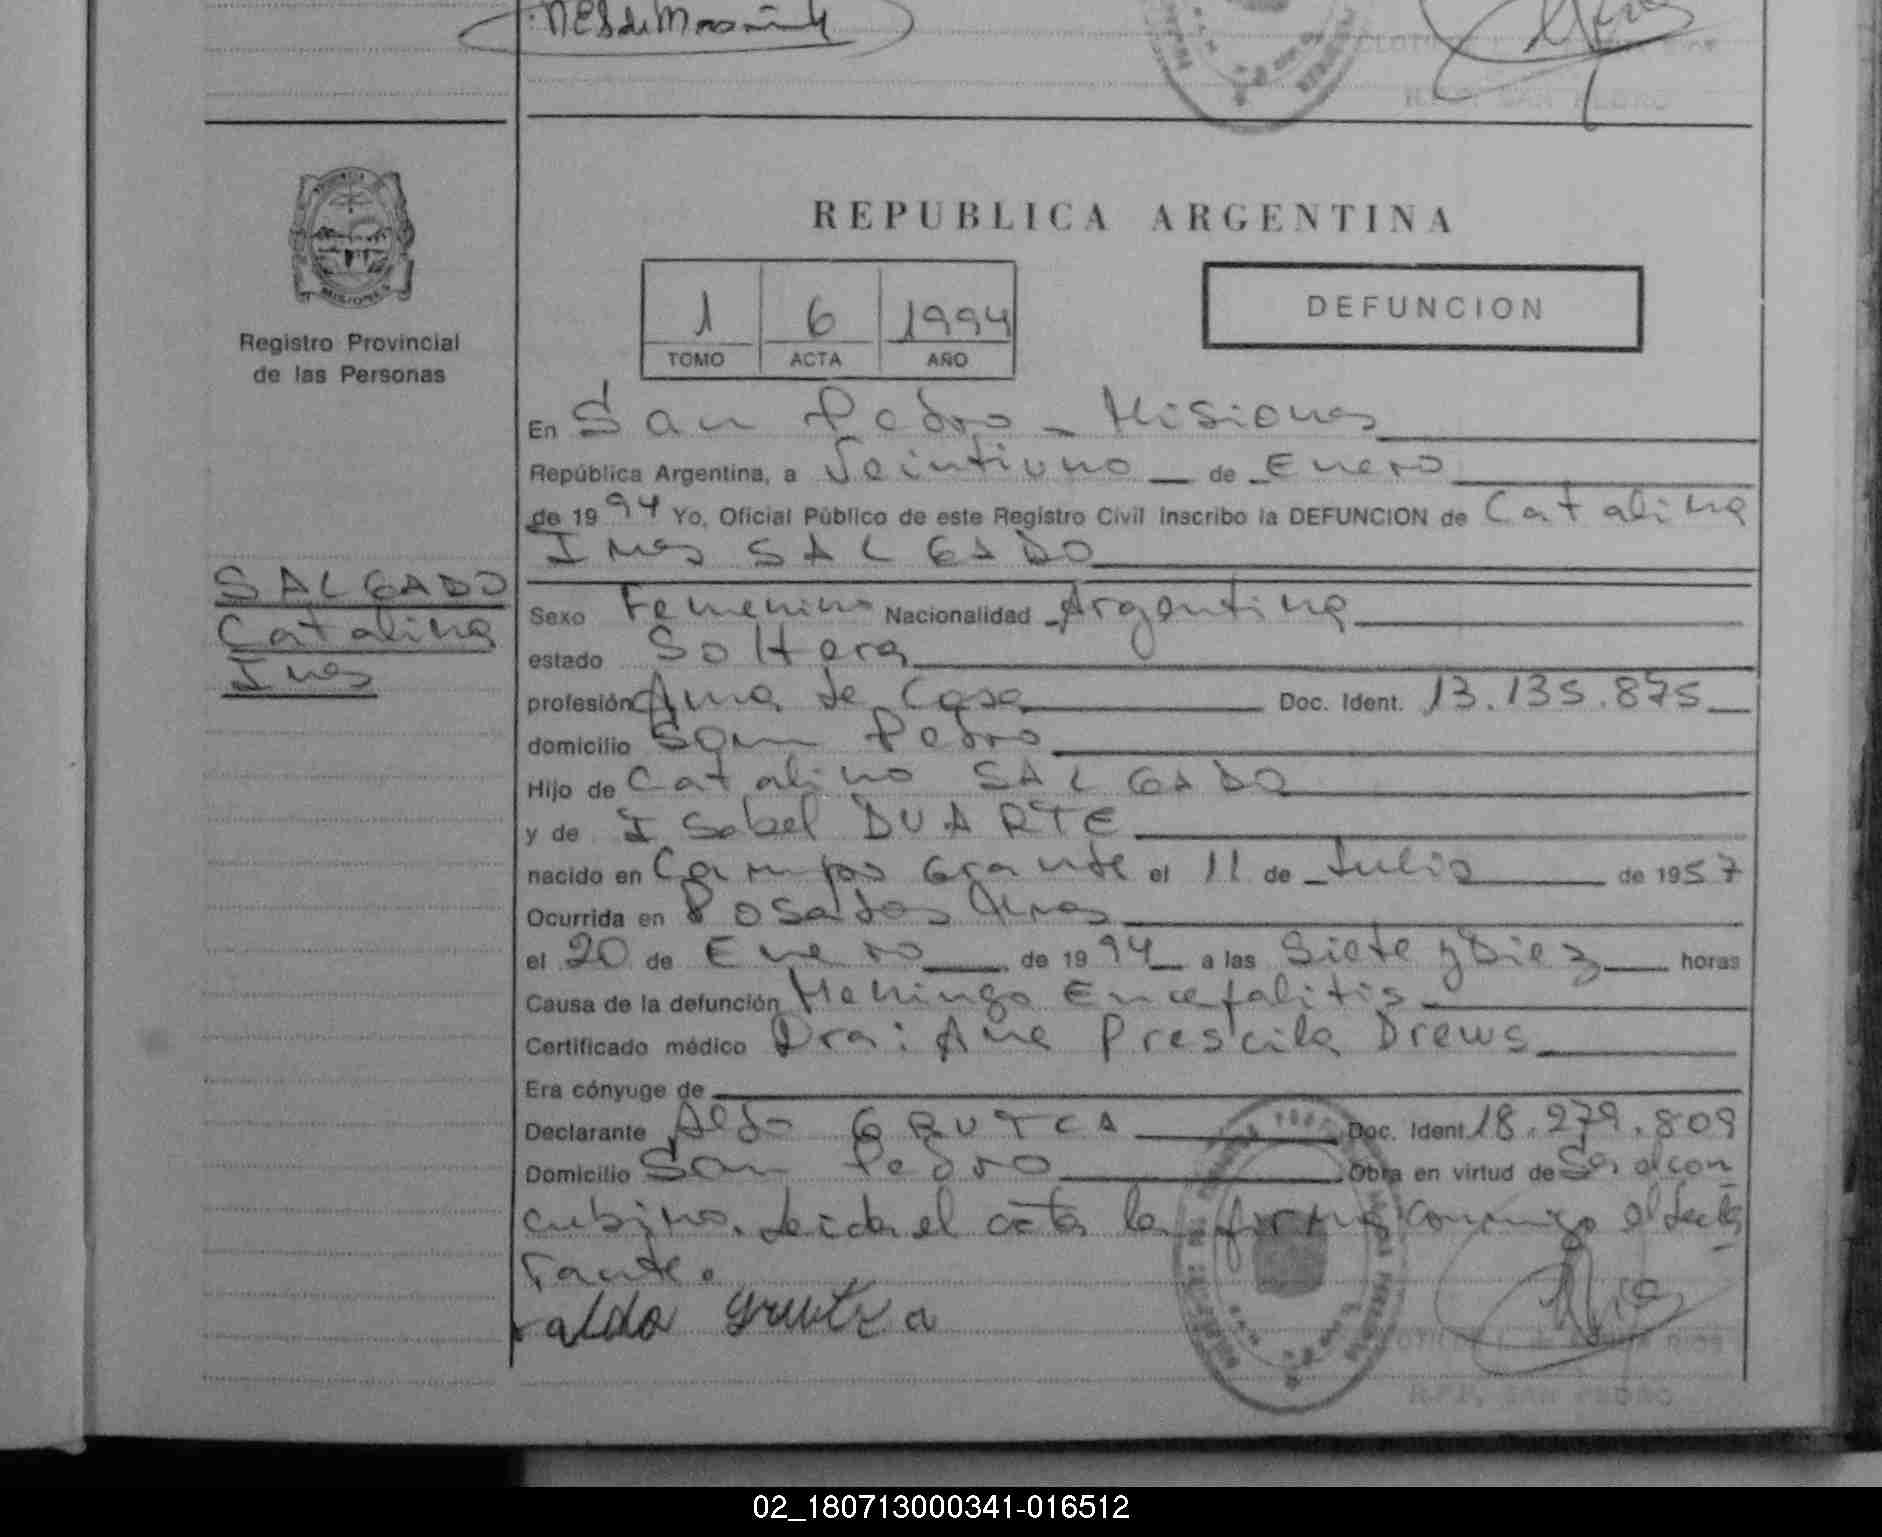 R.P.P. SAN PEDRO
REPUBLICA ARGENTINA
1 6 1994
TOMO ACTA AÑO
DEFUNCION
MISIONES
Registro Provincial
de las Personas
En San Pedro - Misiones
República Argentina, a Veintiuno de Enero
de 1994 Yo, Oficial Público de este Registro Civil inscribo la DEFUNCION de Catalina
Ines SALGADO
SALGADO
Catalina
Ines
Sexo Femenino Nacionalidad Argentina
estado Soltera
profesión Ama de Casa Doc. Ident. 13.135.875
domicilio San Pedro
Hijo de Catalino SALGADO
y de Isabel DUARTE
nacido en Campo Grande el 11 de Julio de 1957
Ocurrida en Posadas Mnes
el 20 de Enero de 1994 a las Siete y Diez horas
Causa de la defunción Meningo Encefalitis
Certificado médico Dra: Ana Prescila Drews
Era cónyuge de
Declarante Aldo GRUTCA Doc. Ident. 18.279.809
Domicilio San Pedro Obra en virtud de Ser el con
cubino. Leida el acta la firma conmigo el decla
rante.
aldo grutza
R.P.P. SAN PEDRO
02_180713000341-016512